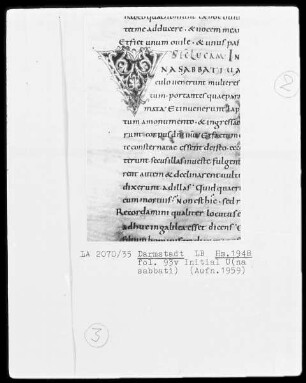 teme adducere. & uocem mea
Et fiet unum ouile. & unus pas
SECLUCAM IN
NA SABBATI UA
culo uenerunt mulieres
tum portantes quae para
mata. Et inuenerunt lap
tum amonumento. & ingressae
runt corpus dni
re consternatae essent de isto. ecc
terunt secus illas inueste fulgent
rent autem & declinarent uultu
dixerunt ad illas. Quid quaer
cum mortuis. Non est hic. sed r
Recordamini qualiter locutus e
adhuc in galilea esset dicens.
LA 2070/35 Darmstadt LB Hs.1948
fol. 93v Initial U(na
sabbati) (Aufn.1959)
2
3